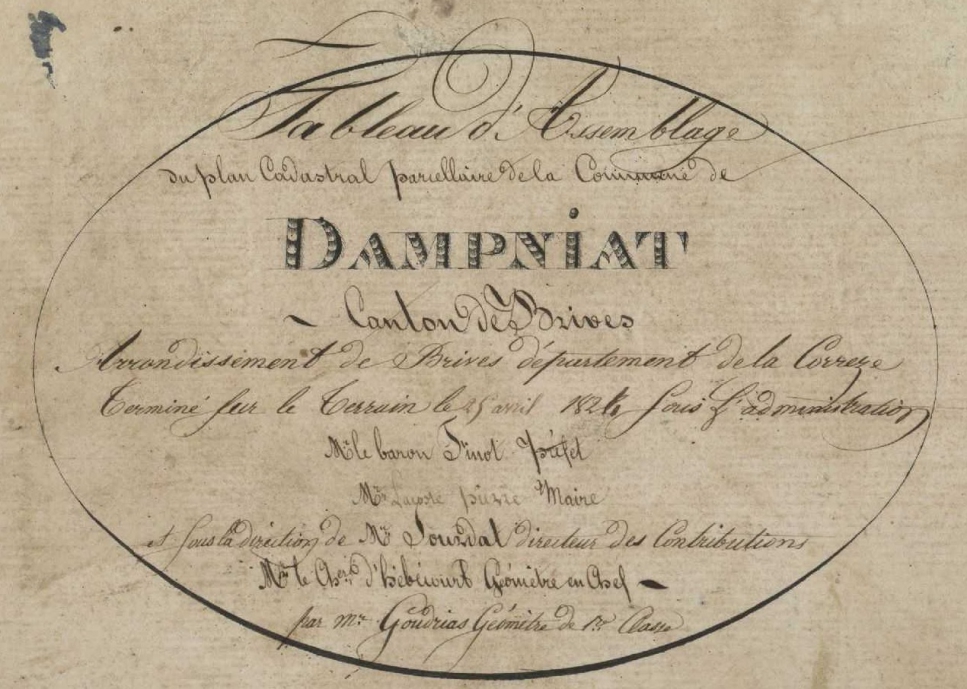 Tableau d'Assemblage
du plan Cadastral parcellaire de la Commune de
DAMPNIAT
~ Canton de Brives
Arrondissement de Brives département de la Correze
Terminé sur le Terrain le 25 avril 1824 sous L'administration
Mr le baron Finot préfet
Mr Lacoste pierre Maire
et sous la direction de Mr Sourdat directeur des Contributions
Mr le Cher d'hébécourt Géomètre en Chef —
par mr Goudrias Géomètre de 1re Classe